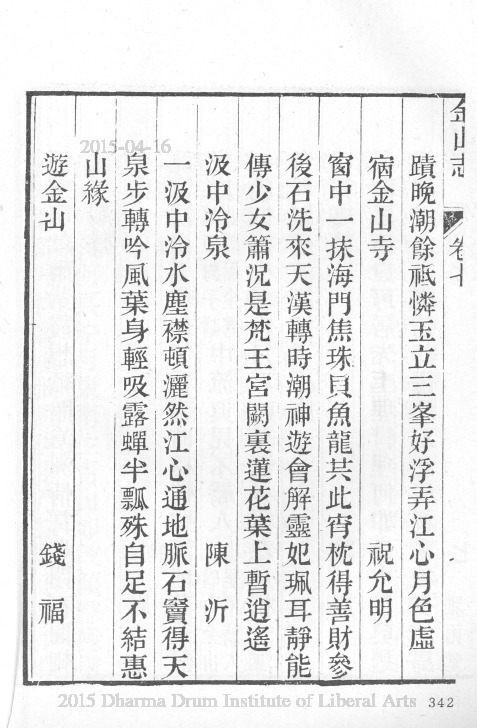 金山志 卷七
蹟晚潮餘祗憐玉立三峯好浮弄江心月色虛
宿金山寺 祝允明
窗中一抹海門焦珠貝魚龍共此宵枕得善財參
後石洗來天漢轉時潮神遊會解靈妃珮耳靜能
傳少女簫況是梵王宮闕裏蓮花葉上暫逍遙
汲中泠泉 陳沂
一汲中泠水塵襟頓灑然江心通地脈石竇得天
泉步轉吟風葉身輕吸露蟬半瓢殊自足不結惠
山緣
遊金山 錢福
2015-04-16
2015 Dharma Drum Institute of Liberal Arts
342